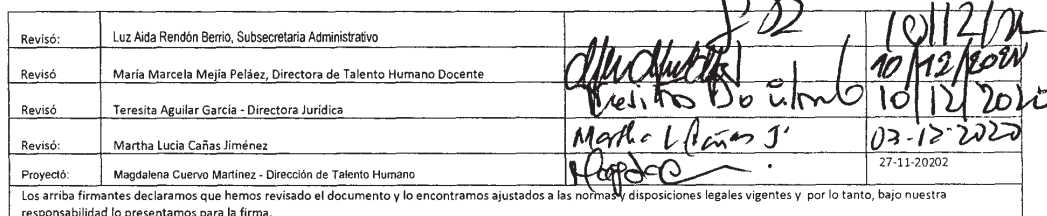 Revisó: Luz Aida Rendón Berrio, Subsecretaria Administrativo 10/12/20
Revisó María Marcela Mejía Peláez, Directora de Talento Humano Docente 10/12/2020
Revisó Teresita Aguilar García - Directora Jurídica 10/12/2020
Revisó: Martha Lucia Cañas Jiménez Martha L Cañas J 03-12-2020
Proyectó: Magdalena Cuervo Martínez - Dirección de Talento Humano 27-11-20202
Los arriba firmantes declaramos que hemos revisado el documento y lo encontramos ajustados a las normas y disposiciones legales vigentes y por lo tanto, bajo nuestra
responsabilidad lo presentamos para la firma.